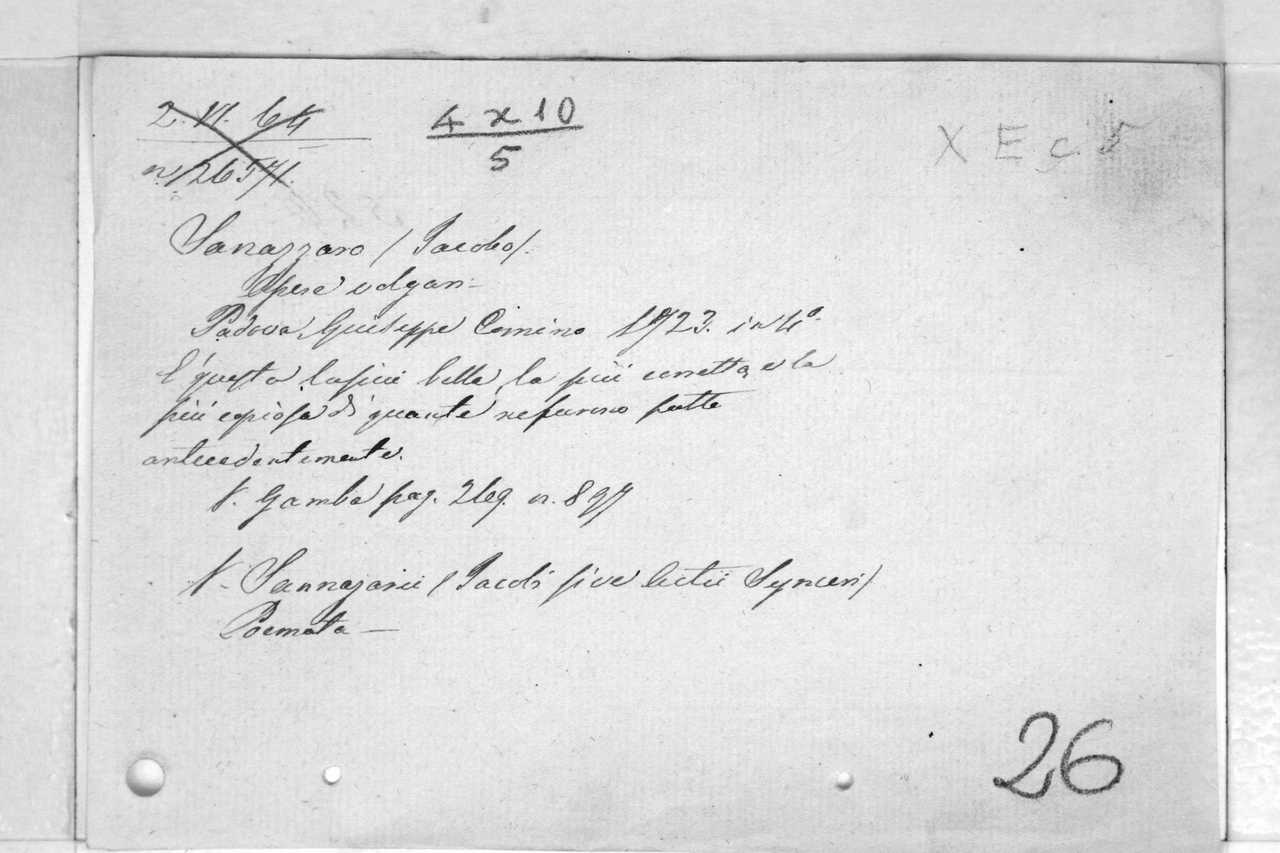 2. VI. 64
4 x 10
5
X E c. 5
n. 12657/1.
Sanazzaro / Jacobo /.
Opere volgari -
Padova, Giuseppe Comino 1723. in 4º.
E' questa la più bella, la più corretta, e la
più copiosa di quante ne furono fatte
antecedentemente.
V. Gamba pag. 269. n. 897
V. Sannazarii / Jacobi sive Actii Synceri /
Poemata —
26